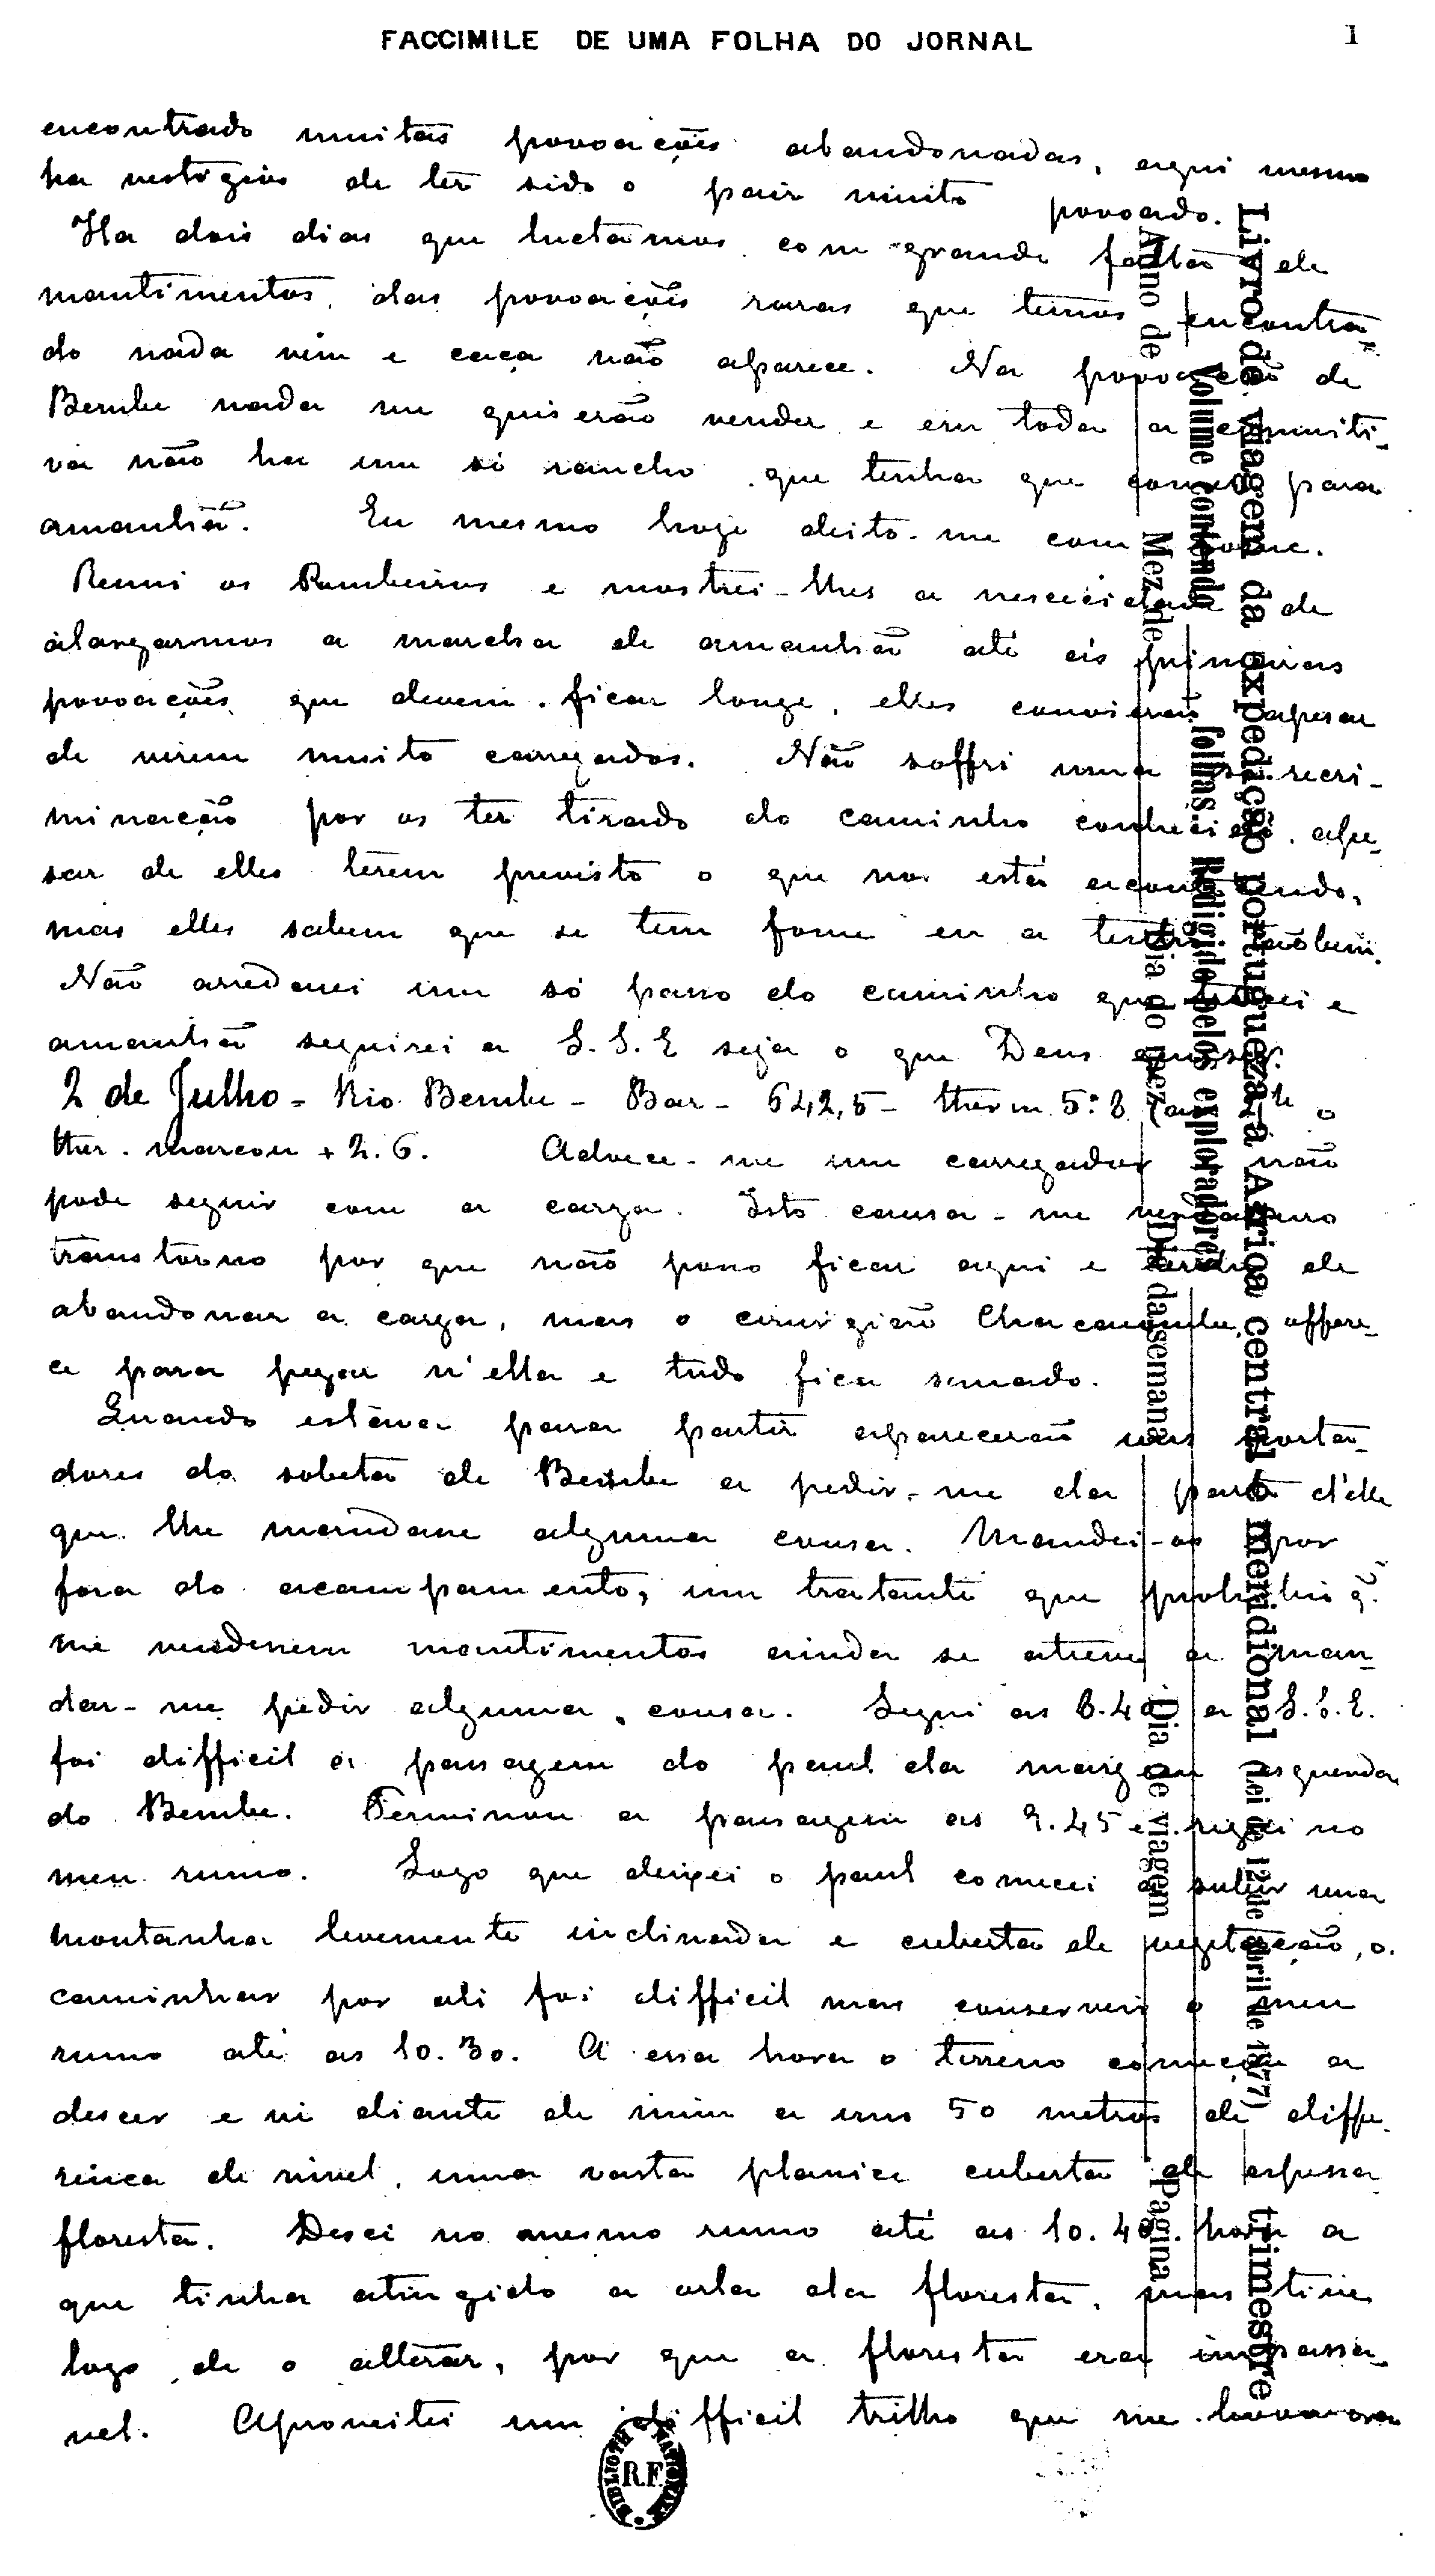 FACCIMILE DE UMA FOLHA DO JORNAL
1
encontrado muitas povoações abandonadas, aqui mesmo
ha vestigios de ter sido o paiz muito povoado.
Ha dois dias que luctâmos com grande falta de
mantimentos, das povoações raras que temos encontra-
do nada vem e caça não aparece. Na povoação de
Bembe nada me quiserão vender e em toda a comiti-
va não ha um só rancho que tenha que comer para
amanhã. Eu mesmo hoje deito-me com fome.
Reuni os Pombeiros e mostrei-lhes a nescecidade de
alargarmos a marcha de amanhã até ás primeiras
povoações que devem ficar longe, elles convierão apesar
de virem muito carregados. Não soffri uma só recri-
minação por os ter tirado do caminho conhecido, ape-
sar de elles terem previsto o que nos está acontecendo,
mas elles sabem que se tem fome eu a tenho tãobem.
Não arredarei um só passo do caminho que tracei e
amanhã seguirei a S.S.E seja o que Deus quizer.
2 de Julho - Rio Bembe - Bar - 642,5 - therm. 5:8 o
ther. marcou + 2.6. Adoece-me um carregador não
pode seguir com a carga. Isto causa-me verdadeiro
transtorno por que não posso ficar aqui e terei de
abandonar a carga, mas o cirurgião Chacaiombe, offere-
ce para pegar n'ella e tudo fica sanado.
Quando estava para partir aparecerão uns porta-
dores do sobeta de Bembe a pedir-me da parte d'elle
que lhe mandasse alguma cousa. Mandei-os por
fora do acampamento, um tratante que prohibio q.
me vendessem mantimentos ainda se atreve a man-
dar-me pedir alguma cousa. Segui as 8.40 a S.S.E.
foi difficil a passagem do paul da margem esquerda
do Bembe. Terminou a passagem as 9.45 e segui no
meu rumo. Logo que deixei o paul comecei a subir uma
montanha levemente inclinada e cuberta de vegetação, o
caminhar por ali foi difficil mas conservei o meu
rumo até as 10.30. A essa hora o terreno começou a
descer e vi diante de mim a uns 50 metros de diffe-
rença de nivel, uma vasta planice cuberta de espessa
floresta. Desci no mesmo rumo até as 10.40. hora a
que tinha atingido a orla da floresta, mas tive
logo de o alterar, por que a floresta era impassa-
vel. Aproveitei um difficil trilho que me levava ora
Livro de viagem da expedição portugueza á Africa central e meridional (Lei de 12 de abril de 1877) trimestre
Volume contendo folhas. Redigido pelos exploradores
Anno de Mez de Dia do mez Dia da semana Dia de viagem Pagina
BIBLIOTH NATIONALE
R.F.